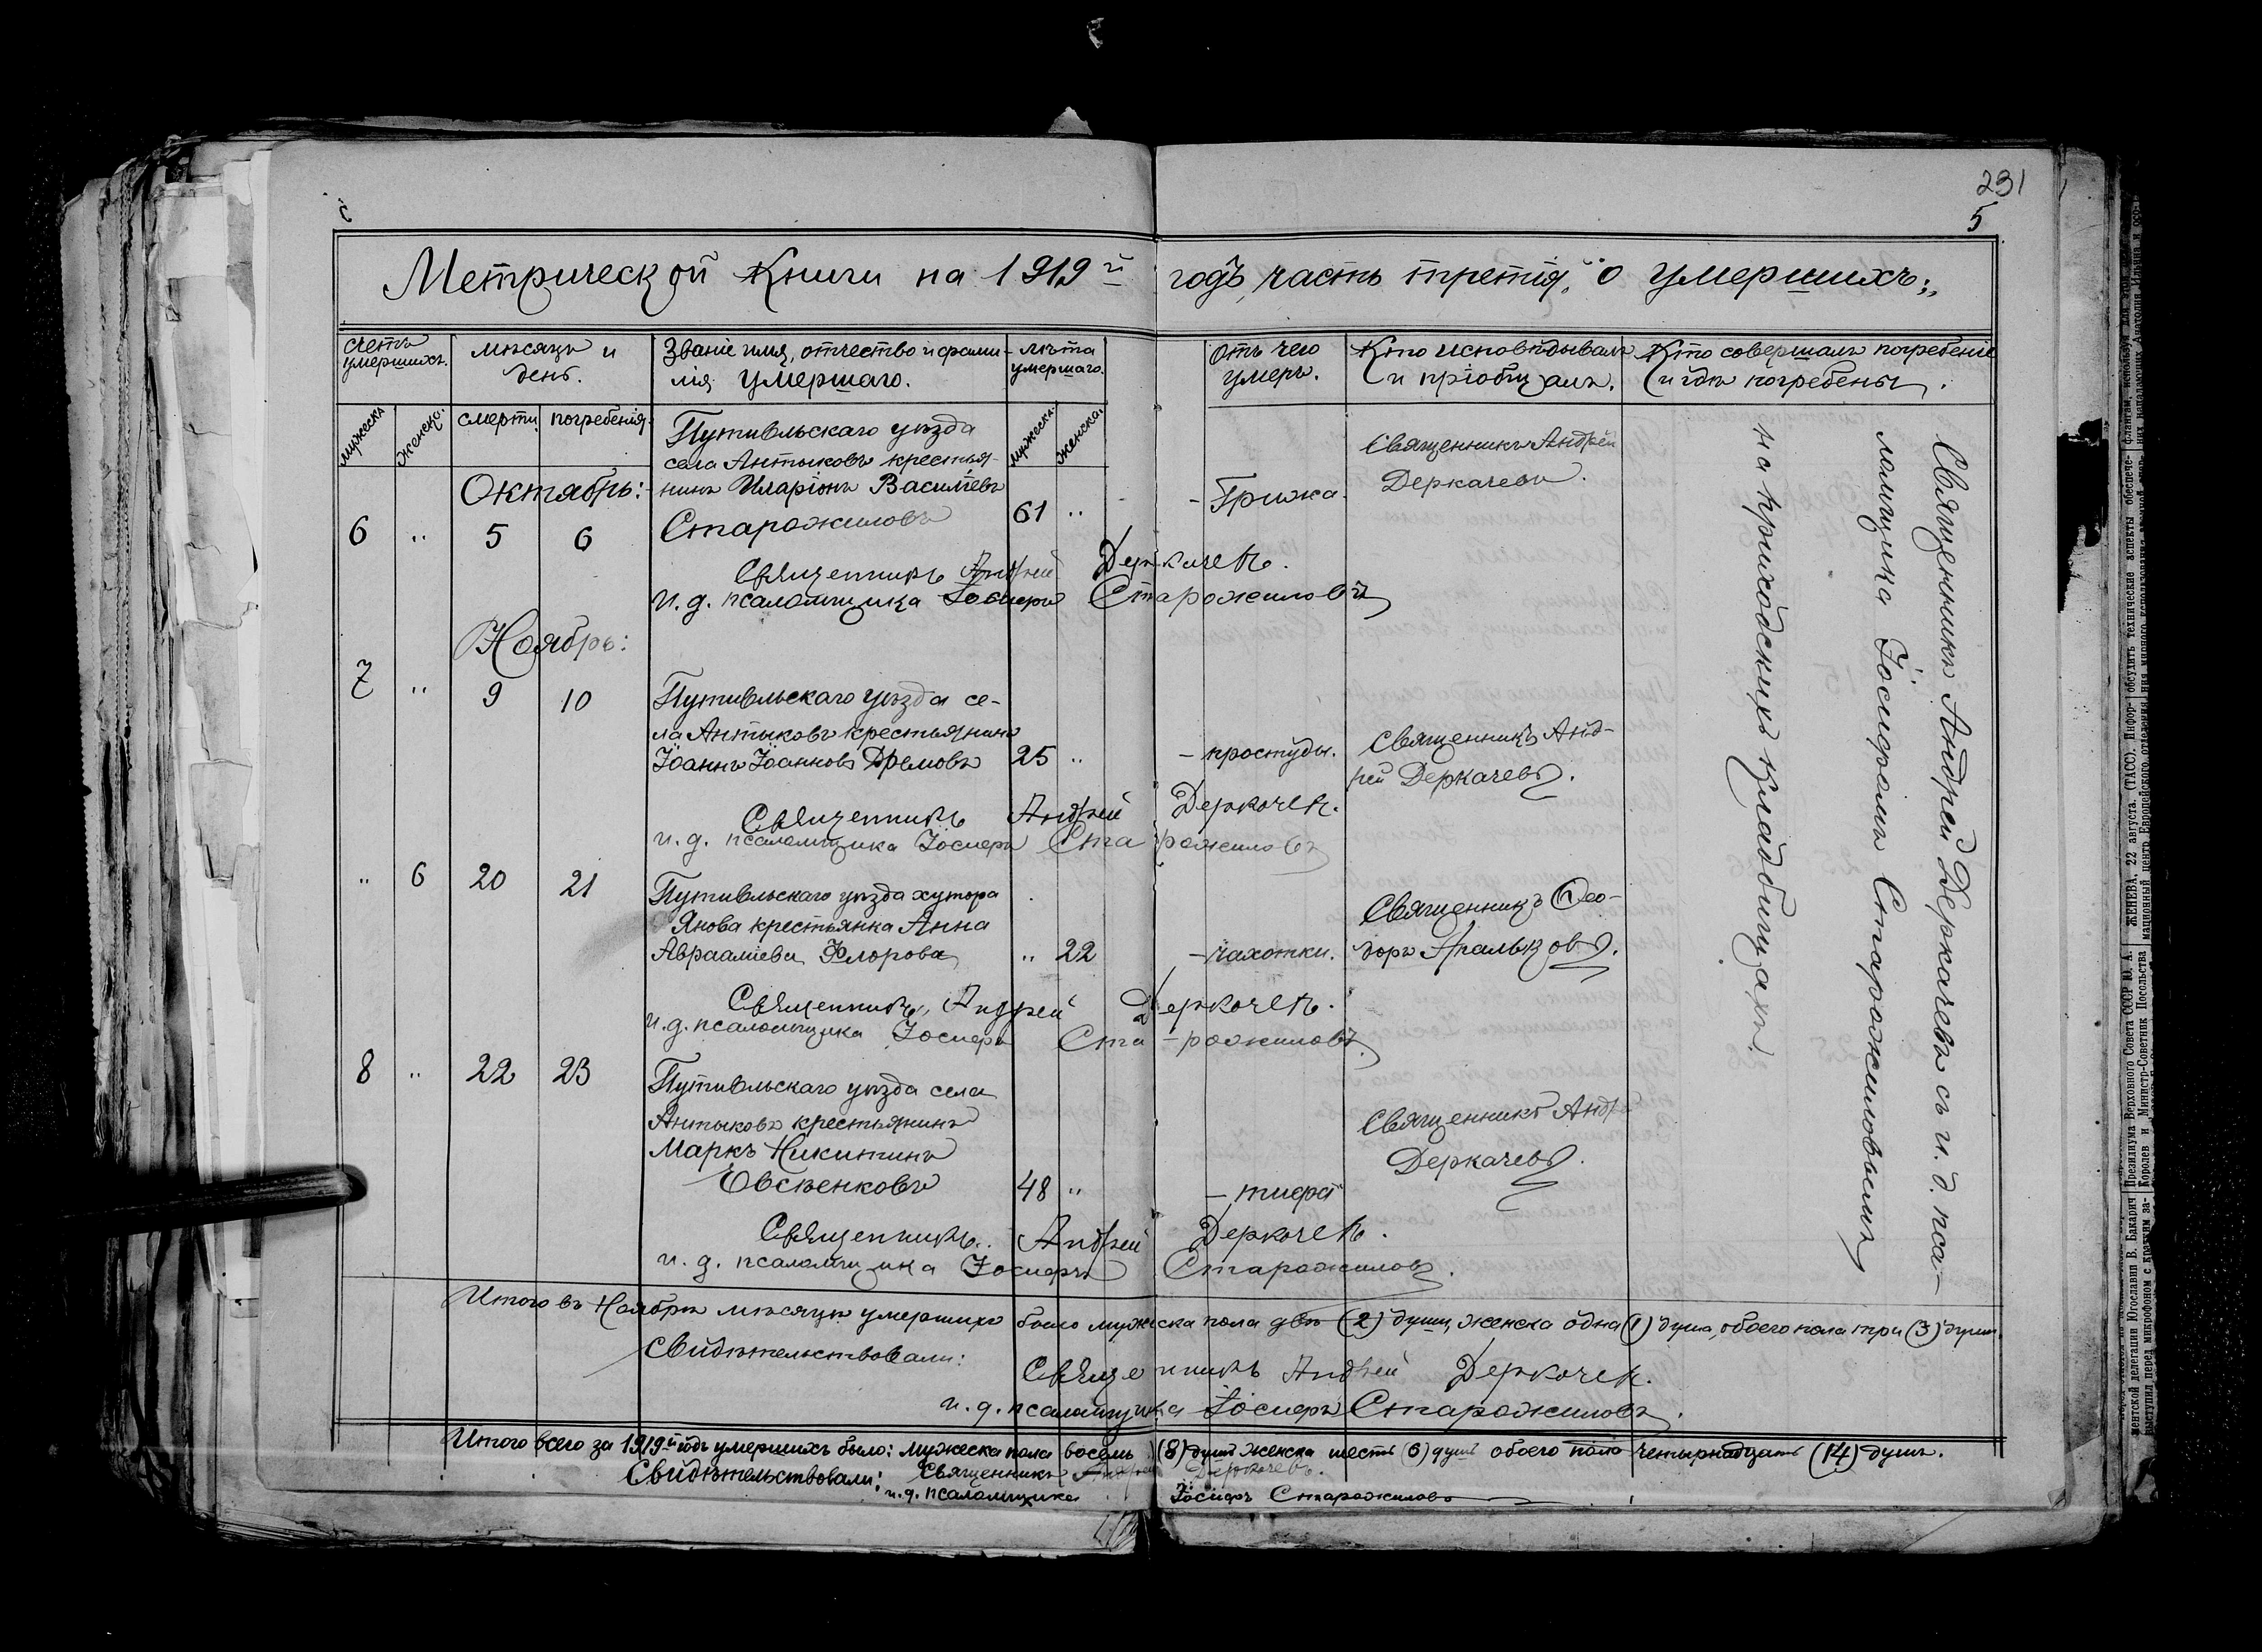 231
5
Метрической Книги на 1919й годъ, часть третія, „о умершихъ„
Счетъ умершихъ.
Мѣсяцъ и день.
Званіе имя, отчество и фами-
лія умершаго.
лѣта умершаго.
Отъ чего умеръ.
Кто исповѣдывалъ и пріобщалъ.
Кто совершалъ погребеніе и гдѣ погребены.
мужеска
женска.
смерти
погребенія.
мужеска.
женска.
Октябрь:
6 „ 5 6
Путивльскаго уѣзда
села Антыковъ крестья-
нинъ Иларіонъ Василіевъ
Старожиловъ
61 „
- Грижа.
Священникъ Андрей
Деркачевъ.
Священникъ Андрей Деркачевъ.
и. д. псаломщика Іосифъ Старожиловъ
Ноябрь:
7 „ 9 10
Путивльскаго уѣзда се-
ла Антыковъ крестьянинъ
Іоаннъ Іоанновъ Ефремовъ
25 „
- простуды.
Священникъ Анд-
рей Деркачевъ.
Священникъ Андрей Деркачевъ.
и. д. псаломщика Іосифъ Старожиловъ
„ 6 20 21
Путивльскаго уѣзда хутора
Янова крестьянка Анна
Авраамiева Флорова
„ 22
- чахотки.
Священникъ Ѳео-
доръ
Священникъ Андрей Деркачевъ.
и. д. псаломщика Іосифъ Ста-рожиловъ.
8 „ 22 23
Путивльскаго уѣзда села
Антыковъ крестьянинъ
Маркъ Никитинъ
Овсѣенковъ
48 „
- тифа
Священникъ Андрей
Деркачевъ.
Священникъ Андрей Деркачевъ.
и. д. псаломщика Іосифъ Старожиловъ.
Священникъ Андрей Деркачевъ съ и. д. пса-
ломщика Іосифомъ Старожиловымъ
на приходскихъ кладбищахъ.
Итого въ Ноябрѣ мѣсяцѣ умершихъ было мужеска пола двѣ (2) души, женска одна (1) душа, обоего пола три (3) души.
Свидѣтельствовали:
Священникъ Андрей Деркачевъ.
и. д. псаломщика Іосифъ Старожиловъ.
Итого всего за 1919й годъ умершихъ было: мужеска пола восемь (8) душъ женска шесть (6) душъ обоего пола четырнадцать (14) душъ.
Свидѣтельствовали: Священникъ Андрей Деркачевъ.
и. д. псаломщика Іосифъ Старожиловъ